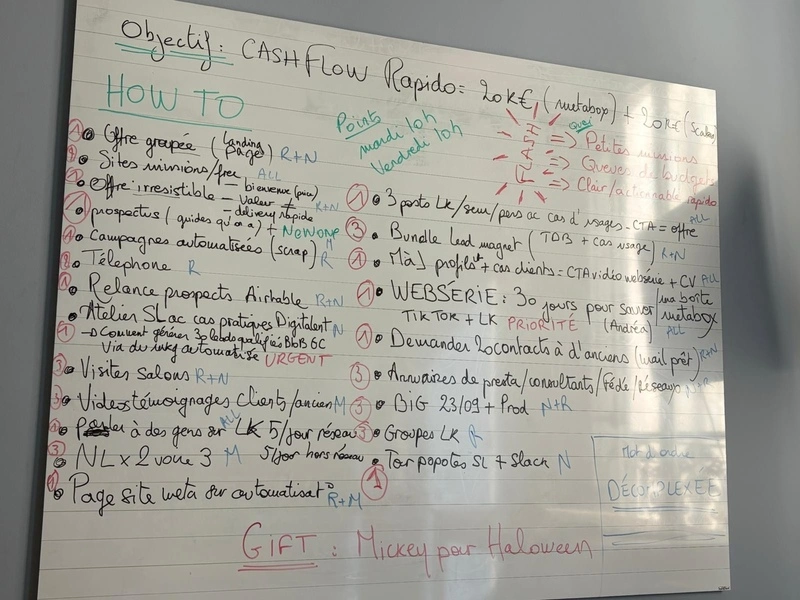 Objectif : CASHFLOW Rapido = 20K€ (metabox) + 20K€ (Scaler)
HOW TO
Points
mardi 10h
Vendredi 10h
Quoi
=> Petites missions
=> Queues de budgets
=> Clair/actionnable rapido
① Offre groupée (Landing Page) R+N
Sites missions/free ALL
Offre irresistible – bienvenue (prix)
– Valeur + R+N
– delivery rapide
① prospectus (guides qu'on a) + New one
Campagnes automatisées (scrap) R
Téléphone R
① Relance prospects Airtable R+N
Atelier SL ac cas pratiques Digitalent N
① → Comment générer 30 leads qualifiés BtoB &C
Via du mkg automatisé URGENT
③ Visites Salons R+N
③ Videos témoignages Clients/ancien M
① Parler à des gens sur LK 5/jour réseau ALL
5/jour hors réseau
③ NL x 2 voire 3 M
① Page site meta sur automatisat° R+M
① 3 posts LK/sem/pers ac cas d'usages - CTA = offre ALL
③ Bundle Lead magnet (TDB + cas usage) R+N
① MàJ profils + cas clients = CTA vidéo websérie + CV ALL
① WEBSÉRIE : 30 jours pour sauver ma boîte
TIKTOK + LK PRIORITÉ (Andréa) metabox ALL
① Demander 20 contacts à d'anciens (mail prêt) R+N
③ Annuaires de presta/consultants/Fédé/Réseaux
③ BIG 23/09 + Prod N+R
③ Groupes LK R
① Tour popotes SL + Slack N
Mot d'ordre
DÉCOMPLEXÉE
GIFT : Mickey pour Haloween